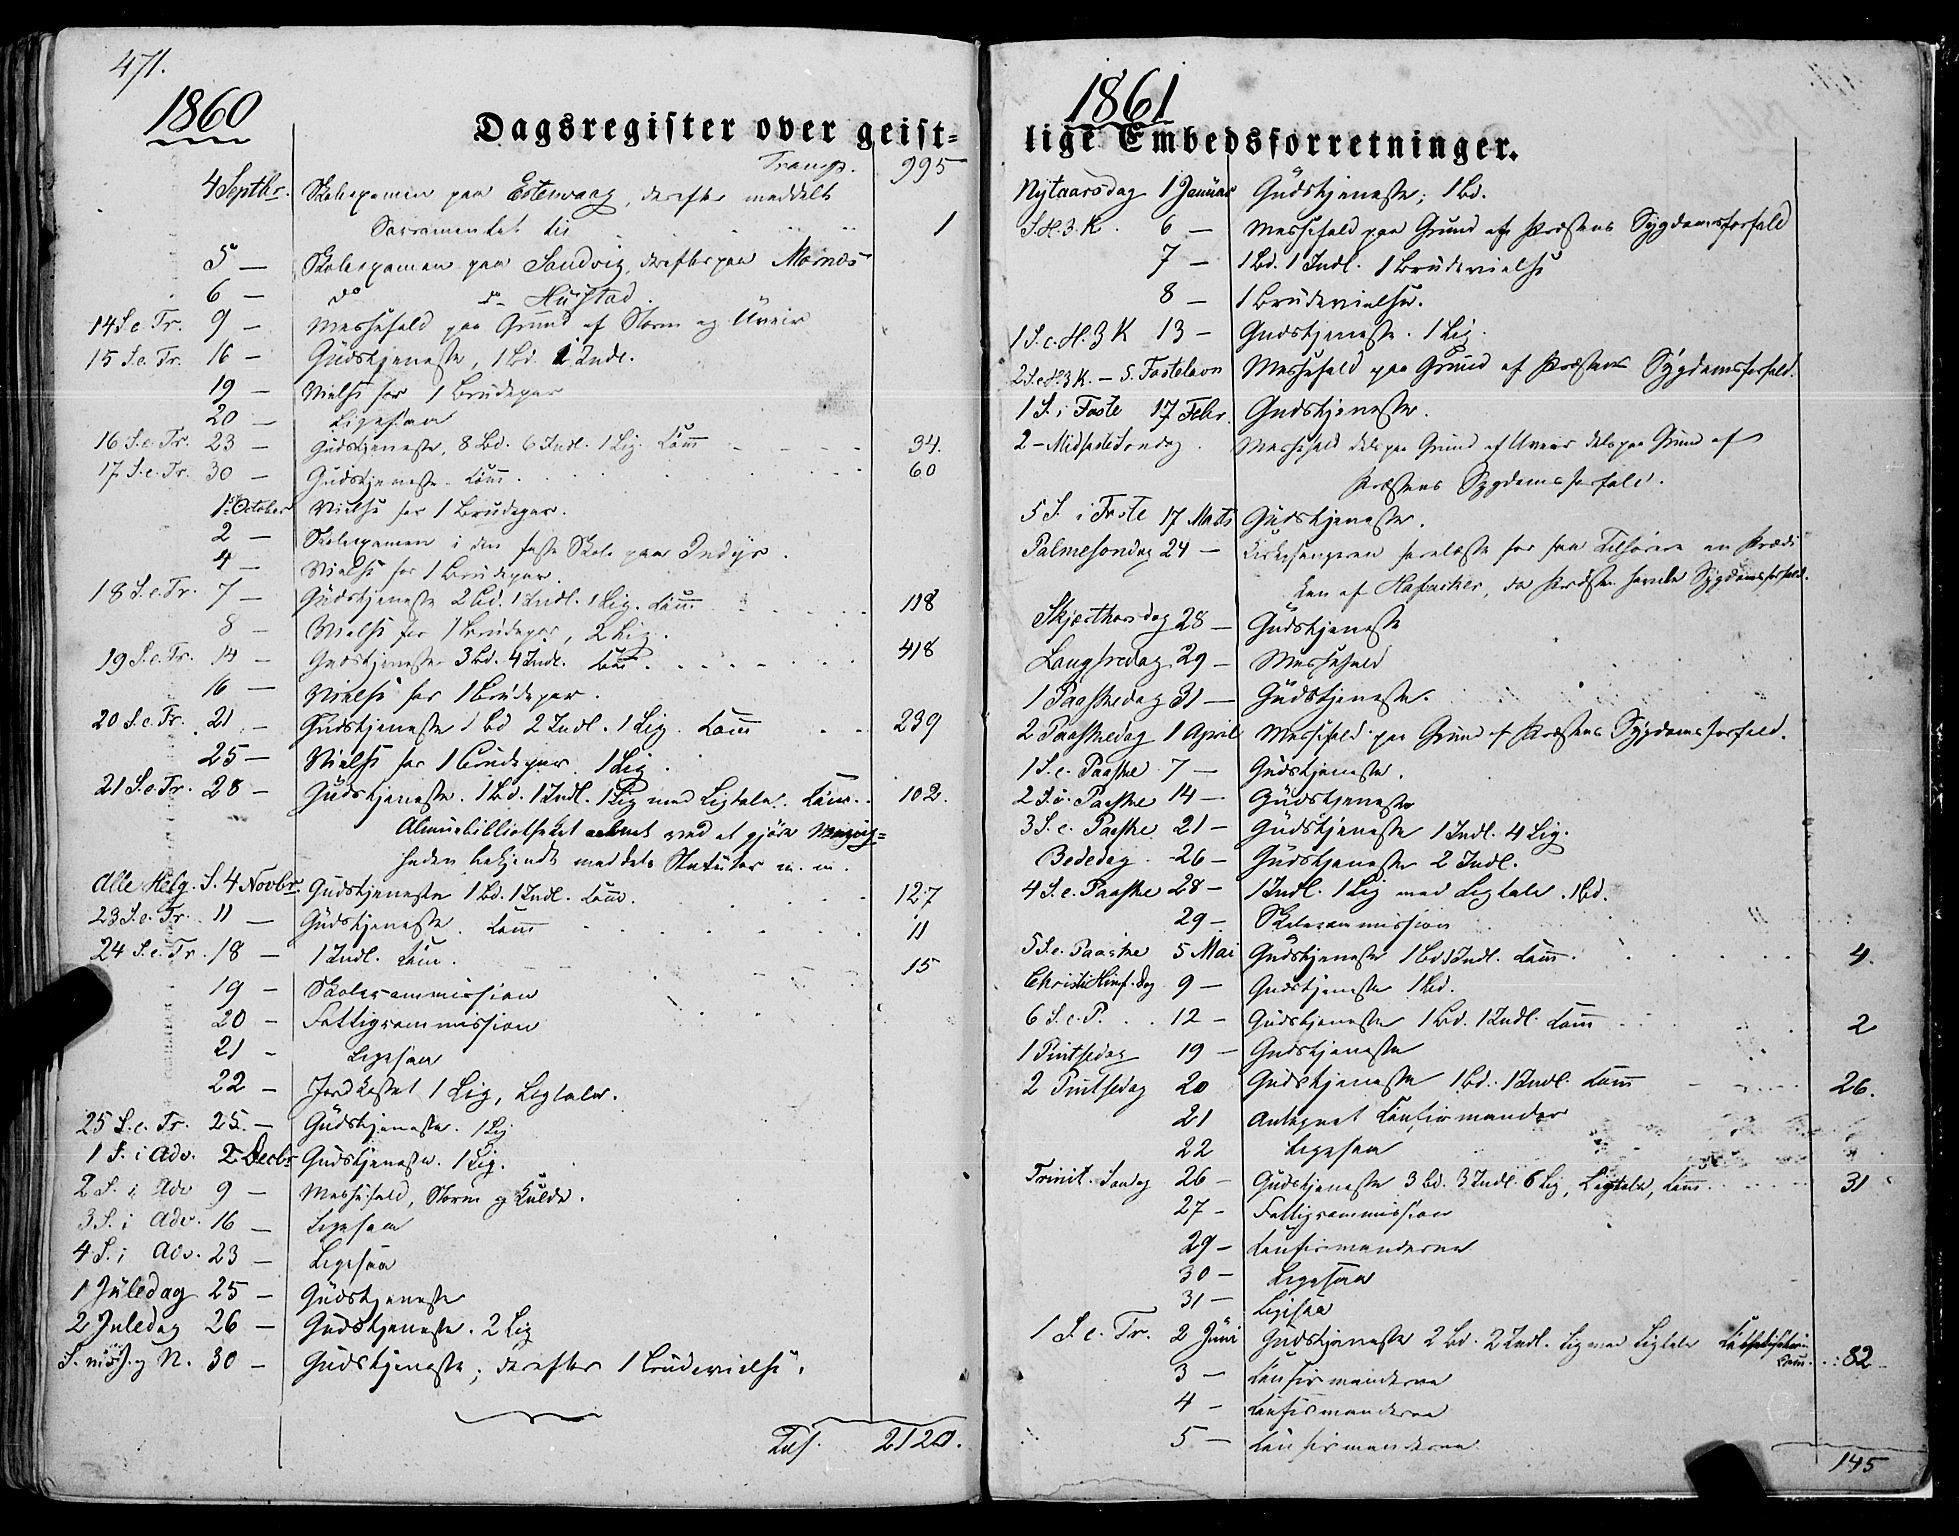 471.
1860
Dagsregister over geist=
Transp. 995
4 Septbr. Skoleexamen paa Estenvaag, derefter meddelt
Sacramentet til 1
5 — Skoleexamen paa Sandvig, derefter paa Mørnæs
6 — do do Hustad.
14 S. e. Tr. 9 — Messefald paa Grund af Storm og Uveir
15 S. e. Tr. 16 — Gudstjeneste, 1 Bd. 1 Indl.
19 — Vielse for 1 Brudepar
20 — Ligesaa
16 S. e. Tr. 23 — Gudstjeneste, 8 Bd. 6 Indl. 1 Lig. Com̅ 34.
17 S. e. Tr. 30 — Gudstjeneste. Com̅. 60
1ste October Vielse for 1 Brudepar.
2 — Skoleexamen i den faste Skole paa Indyr.
4 — Vielse for 1 Brudepar.
18 S. e. Tr. 7 — Gudstjeneste 2 Bd. 1 Indl. 1 Lig. Com̅ 118
8 — Vielse for 1 Brudepar, 2 Lig.
19 S. e. Tr. 14 — Gudstjeneste 3 Bd. 4 Indl. Com̅. 418
16 — Vielse for 1 Brudepar.
20 S. e. Tr. 21 — Gudstjeneste 1 Bd 2 Indl. 1 Lig. Com̅ 239
25 — Vielse for 1 Brudepar. 1 Lig.
21 S. e. Tr. 28 — Gudstjeneste. 1 Bd. 1 Indl. 1 Lig med Ligtale. Com̅. 102.
Almuebibliotheket aabnet ved at gjøre Menig=
heden bekjendt med dets Statuter m. m.
Alle Helg. S. 4 Novbr. Gudstjeneste 1 Bd. 1 Indl. Com̅. 127
23 S. e. Tr. 11 — Gudstjeneste. Com̅ 11
24 S. e. Tr. 18 — 1 Indl. Com̅. 15
19 — Skolecommission
20 — Fattigcommission
21 - Ligesaa
22 — Jordkastet 1 Lig, Ligtale.
25 S. e. Tr. 25. — Gudstjeneste. 1 Lig
1 S. i Adv. 2 Decbr Gudstjeneste. 1 Lig.
2 S. i Adv 9 — Messefald, Storm og Kulde.
3 S. i Adv. 16 — Ligesaa
4 S. i Adv. 23 — Ligesaa
1 Juledag 25 — Gudstjeneste
2 Juledag 26 — Gudstjeneste. 2 Lig
S. m. J. og N. 30 — Gudstjeneste; derefter 1 Brudevielse.
Lat. 2120.
1861
lige Embedsforretninger.
Nytaarsdag 1 Januar Gudstjeneste; 1 Bd.
S. H. 3 K. 6 — Messefald paa Grund af Præstens Sygdomsforfald
7 — 1 Bd. 1 Indl. 1 Brudevielse
8 — 1 Brudevielse.
1 S. e. H. 3 K 13 — Gudstjeneste. 1 Lig.
2 S. e. H. 3 K. — S. Fastelavn Messefald paa Grund af Præstens Sygdomsforfald.
1 S. i Faste 17 Febr. Gudstjeneste.
2 — Midfaste Søndag Messefald dels paa Grund af Uveir dels paa Grund af
Præstens Sygdomsforfald.
5 S. i Faste 17 Marts Gudstjeneste.
Palmesøndag 24 — Kirkesangeren forelæste for faa Tilhørere en Prædi
ken af Hofacker, da Præsten havde Sygdomsforfald.
Skjærthorsdag 28 — Gudstjeneste
Langfredag 29 — Messefald
1 Paaskedag 31 — Gudstjeneste.
2 Paaskedag 1 April Messefald paa Grund af Præstens Sygdomsforfald.
1 S. e. Paaske 7 — Gudstjeneste.
2 S. e. Paaske 14 — Gudstjeneste
3 S. e. Paaske 21 — Gudstjeneste 1 Indl. 4 Lig.
Bededag 26 — Gudstjeneste 2 Indl.
4 S. e. Paaske 28 — 1 Indl. 1 Lig med Ligtale. 1 Bd.
29 — Skolecommission
5 S. e. Paaske 5 Mai Gudstjeneste 1 Bd 1 Indl. Com̅. 4.
Christi Himf. Dag 9 — Gudstjeneste 1 Bd.
6 S. e. P. 12 — Gudstjeneste 1 Bd. 1 Indl. Com̅ 2
1 Pintsedag 19 — Gudstjeneste
2 Pintsedag 20 Gudstjeneste 1 Bd. 1 Indl. Com̅ 26.
21 Antegnet Confirmander
22 Ligesaa
Trinit. Søndag 26 — Gudstjeneste 3 Bd. 3 Indl. 6 Lig, Ligtale, Com̅. 31
27 - Fattigcommission
29 — Confirmanderne
30 — Ligesaa
31 — Ligesaa
1 S. e. Tr. 2 Juni Gudstjeneste 2 Bd. 2 Indl. Lig med Ligtale
Com̅. 82
3 — Confirmanderne
4 - Confirmanderne
5 — Confirmanderne
145